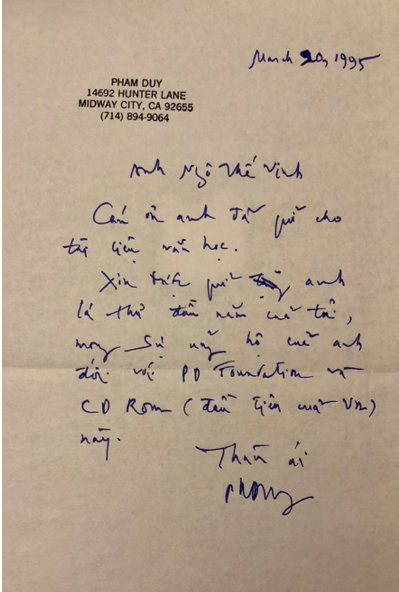 March 20, 1995
PHAM DUY
14692 HUNTER LANE
MIDWAY CITY, CA 92655
(714) 894-9064
Anh Ngô Thế Vinh
Cám ơn anh đã gửi cho
tài liệu văn học.
Xin gửi anh
lá thư đầu năm của tôi,
mong sự ủng hộ của anh
đối với PD Foundation và
CD Rom (đầu tiên của VN)
này.
Thân ái